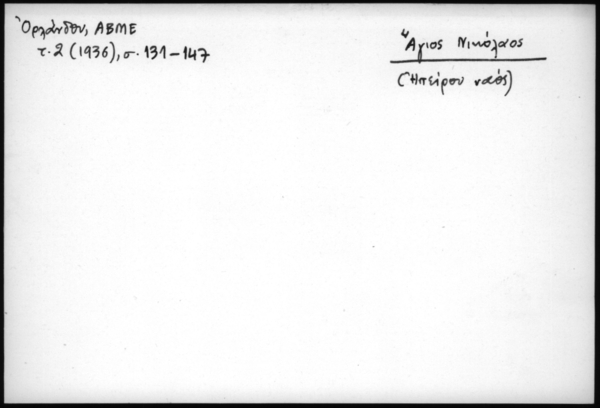 Ὀρλάνδου, ΑΒΜΕ
τ. 2 (1936), σ. 131-147
Ἅγιος Νικόλαος
(Ἠπείρου ναός)